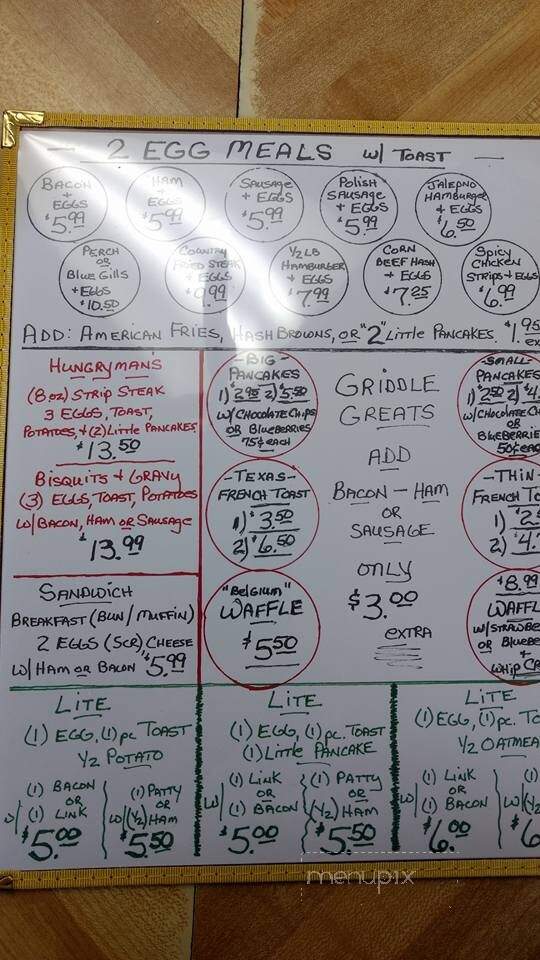 2 EGG MEALS w/ TOAST
BACON
+
EGGS
$5.99
HAM
+
EGGS
$5.99
SAUSAGE
+ EGGS
$5.99
POLISH
SAUSAGE
+ EGGS
$5.99
JALEPNO
HAMBURGER
+ EGGS
$6.50
PERCH
OR
BLUE GILLS
+ EGGS
$10.50
COUNTRY
FRIED STEAK
+ EGGS
$9.99
1/2 LB
HAMBURGER
+ EGGS
$7.99
CORN
BEEF HASH
+ EGGS
$7.25
SPICY
CHICKEN
STRIPS + EGGS
$6.99
ADD: AMERICAN FRIES, HASH BROWNS, OR "2" LITTLE PANCAKES. $1.95
HUNGRYMAN'S
(8 oz) STRIP STEAK
3 EGGS, TOAST,
POTATOES, + (2) LITTLE PANCAKES
$13.50
BISQUITS + GRAVY
(3) EGGS, TOAST, POTATOES
W/ BACON, HAM OR SAUSAGE
$13.99
SANDWICH
BREAKFAST (BUN / MUFFIN)
2 EGGS (SCR), CHEESE
W/ HAM OR BACON $5.99
- BIG -
PANCAKES
1) $2.95 2) $5.50
W/ CHOCOLATE CHIPS
OR BLUEBERRIES
75¢ EACH
- TEXAS -
FRENCH TOAST
1) $3.50
2) $6.50
"BELGIUM"
WAFFLE
$5.50
GRIDDLE
GREATS
ADD
BACON - HAM
OR
SAUSAGE
ONLY
$3.00
EXTRA
- SMALL -
PANCAKES
1) $2.50 2) $4.
W/ CHOCOLATE
OR
BLUEBERRIES
50¢ EACH
- THIN -
FRENCH
1) $2.
2) $4.
$8.99
WAFFLE
W/ STRAWBE
OR BLUEBE
+
WHIP CR
LITE
(1) EGG, (1) PC. TOAST
1/2 POTATO
W/ (1) BACON
OR
(1) LINK
$5.00
(1) PATTY
OR
W/ (1/2) HAM
$5.50
LITE
(1) EGG, (1) PC. TOAST
(1) LITTLE PANCAKE
W/ (1) LINK
OR
(1) BACON
$5.00
(1) PATTY
OR
(1/2) HAM
$5.50
LITE
(1) EGG, (1) PC. TO
1/2 OATMEA
W/ (1) LINK
OR
(1) BACON
$6.00
(1)
W/ (1/2
$6
menupix